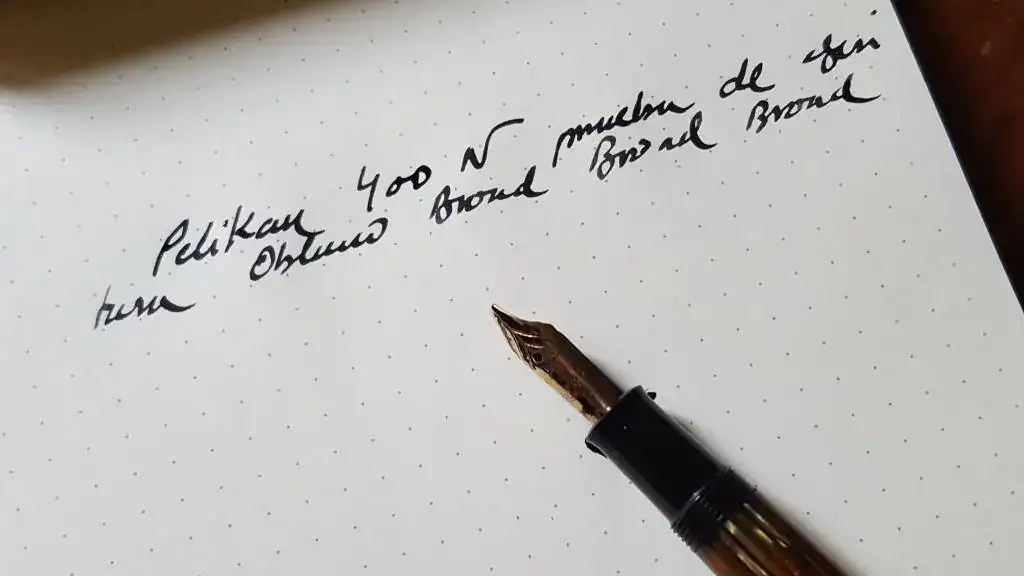 Pelikan 400 N prueba de escri
tura Oblicuo Broad Broad Broad